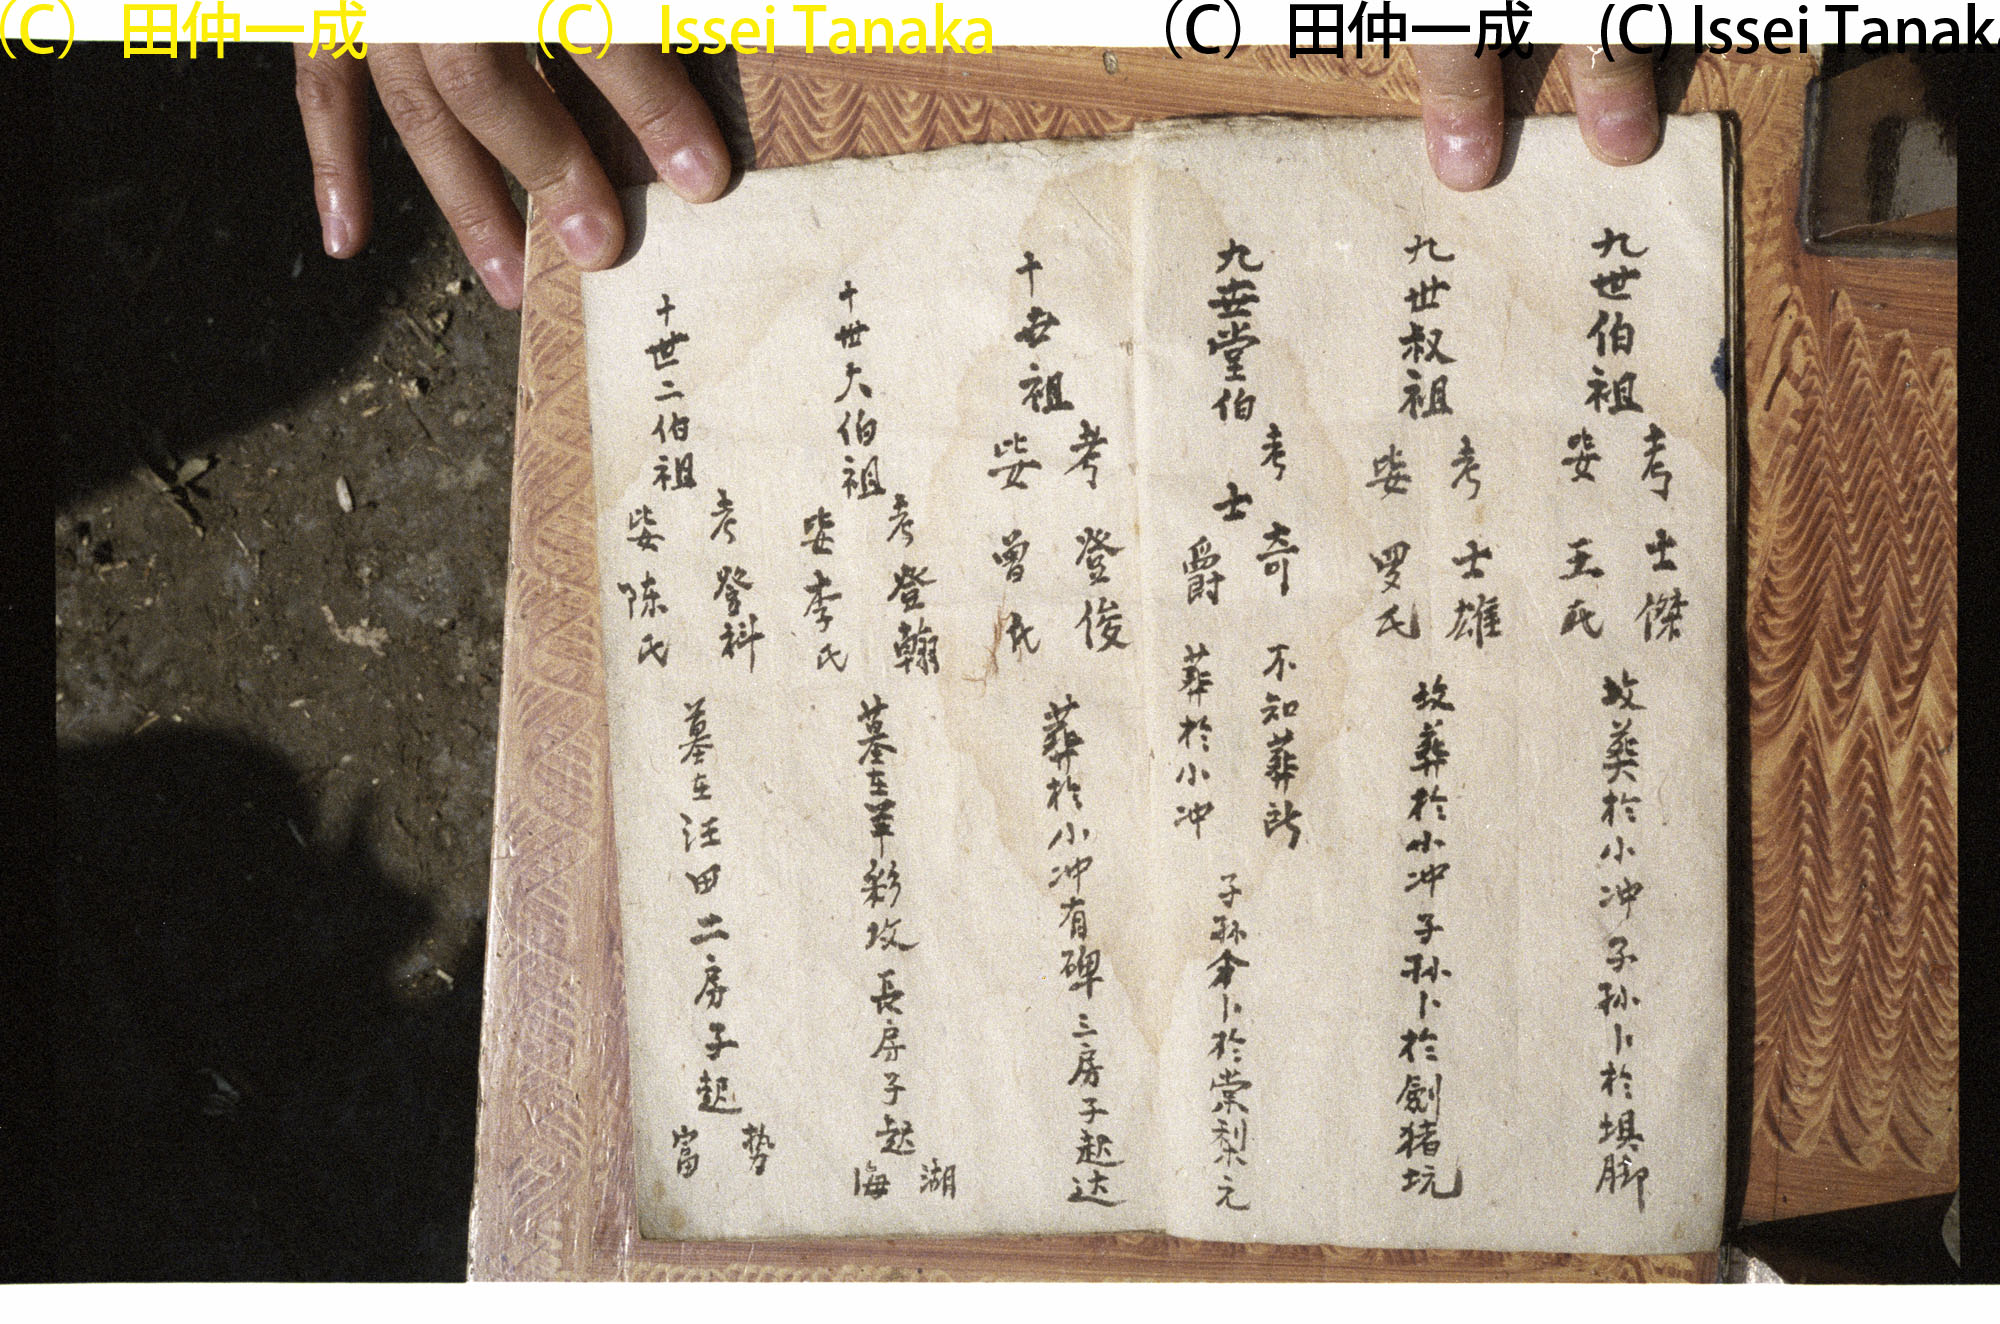 (C) 田仲一成 (C) Issei Tanaka (C) 田仲一成 (C) Issei Tanak
九世伯祖
考 士傑
妣 王氏
坟葬於小冲子孙卜於埧脚
九世叔祖
考 士雄
妣 罗氏
坟葬於小冲子孙卜於劍猪坑
九世堂伯
考 士
奇 不知葬所
爵 葬於小冲
子孙 卜於棠梨元
十世祖
考 登俊
妣 曾氏
葬於小冲有碑三房子起达
十世大伯祖
考 登翰
妣 李氏
墓在羊彩坟長房子起
湖
海
十世二伯祖
考 登科
妣 陈氏
墓在汪田二房子起
势
富